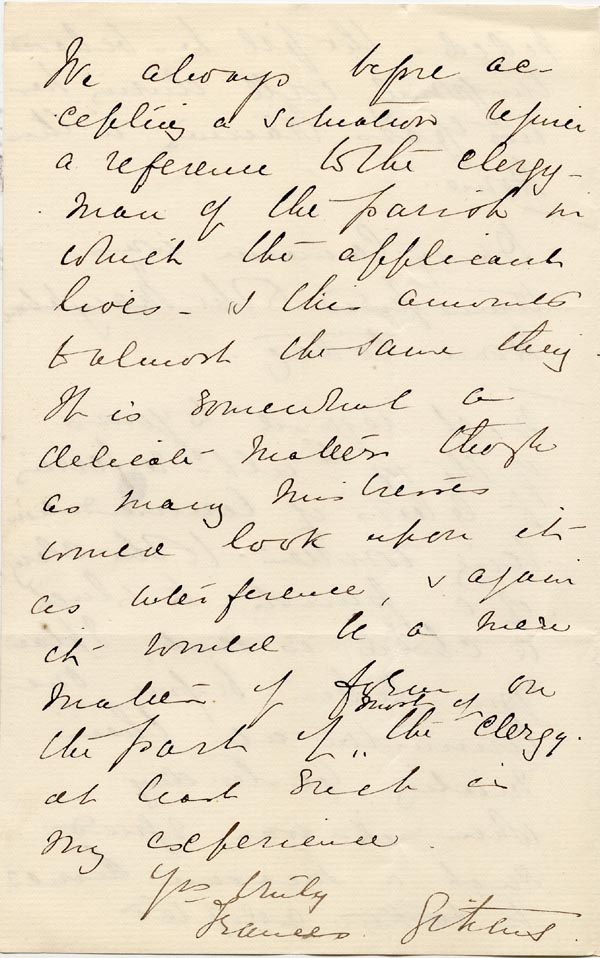 We always before ac-
cepting a situation require
a reference to the clergy-
man of the parish in
which the applicant
lives - & this amounts
to almost the same thing.
It is somewhat a
delicate matter though
as many mistresses
would look upon it
as interference, & again
it would be a mere
matter of form on
most of
the part of the clergy.
at least such is
my experience.
Yrs truly
Frances